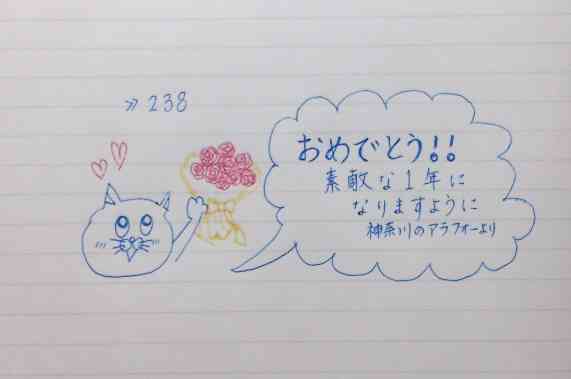 ≫238
おめでとう!!
素敵な1年に
なりますように
神奈川のアラフォーより